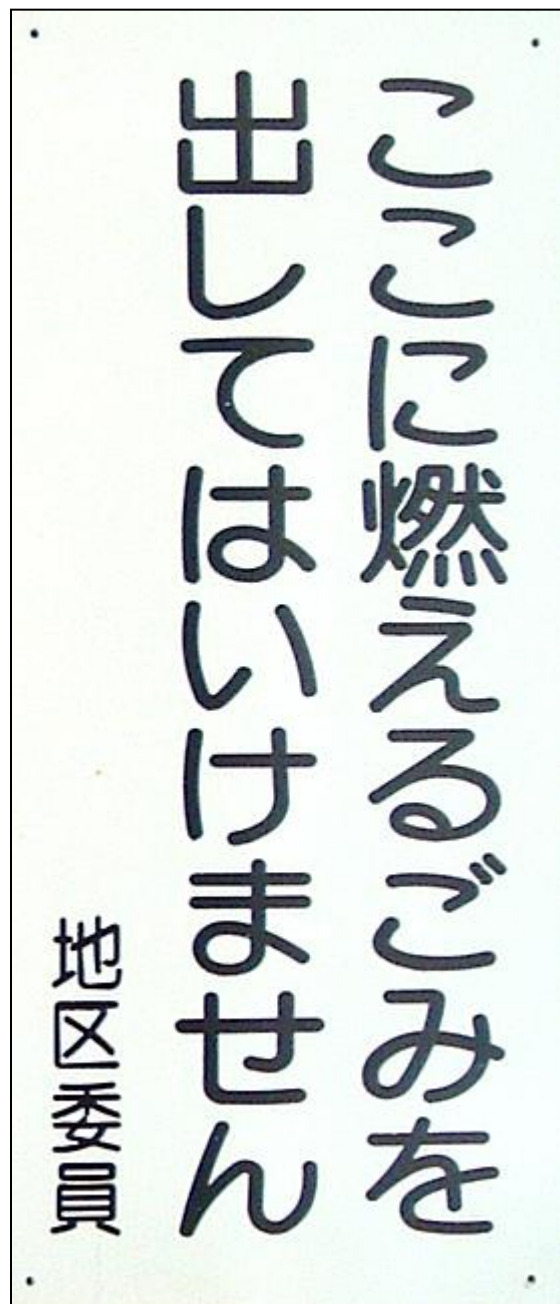 ここに燃えるごみを
出してはいけません
地区委員